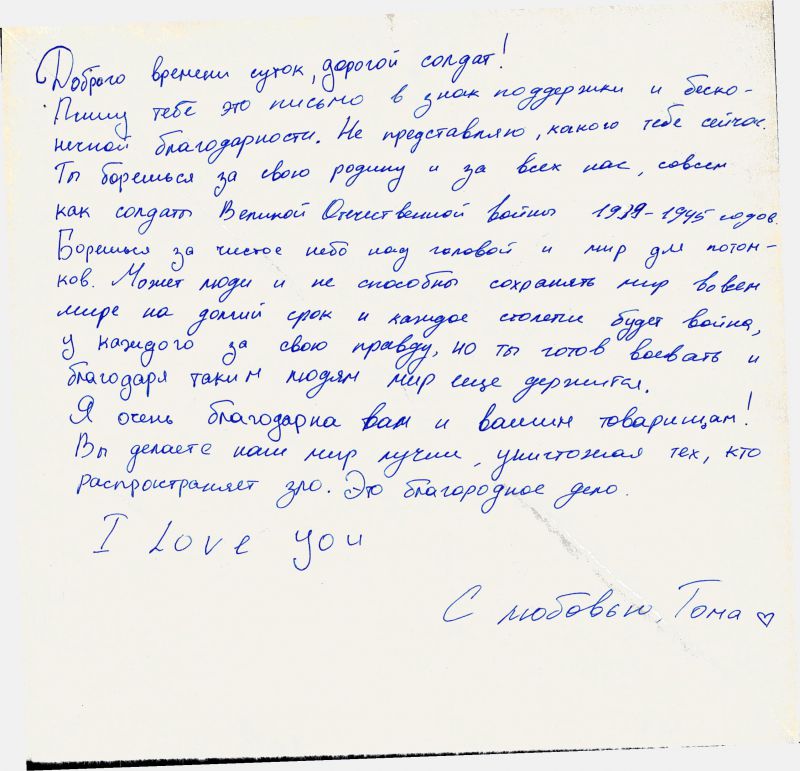 Доброго времени суток, дорогой солдат!
Пишу тебе это письмо в знак поддержки и беско-
нечной благодарности. Не представляю, каково тебе сейчас.
Ты борешься за свою родину и за всех нас, совсем
как солдаты Великой Отечественной войны 1939-1945 годов.
Борешься за чистое небо над головой и мир для потом-
ков. Может люди и не способны сохранять мир во всем
мире на долгий срок и каждое столетие будет война,
у каждого за свою правду, но ты готов воевать и
благодаря таким людям мир еще держится.
Я очень благодарна вам и вашим товарищам!
Вы делаете наш мир лучше, уничтожая тех, кто
распространяет зло. Это благородное дело.
I Love you
С любовью, Тома ♡